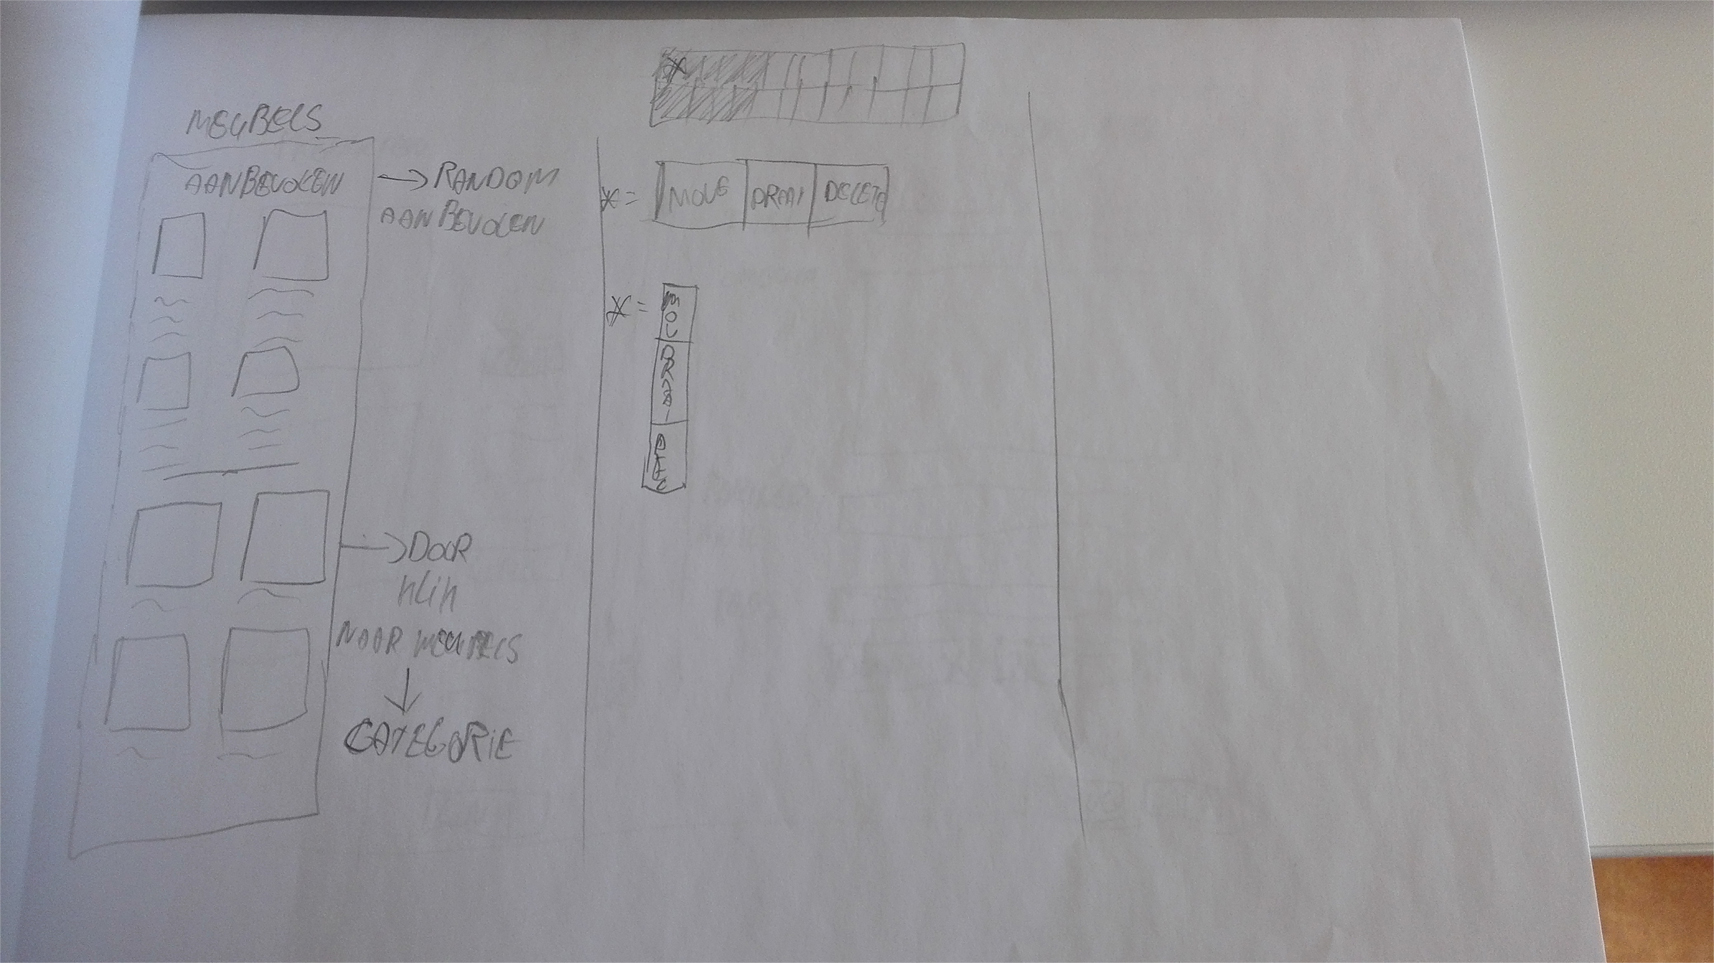 MEUBELS
AANBEVOLEN
→ RANDOM
AANBEVOLEN
→ DOOR
KLIK
NAAR MEUBELS
↓
CATEGORIE
*
* = MOVE DRAAI DELETE
* = MOV DRAAI DELE